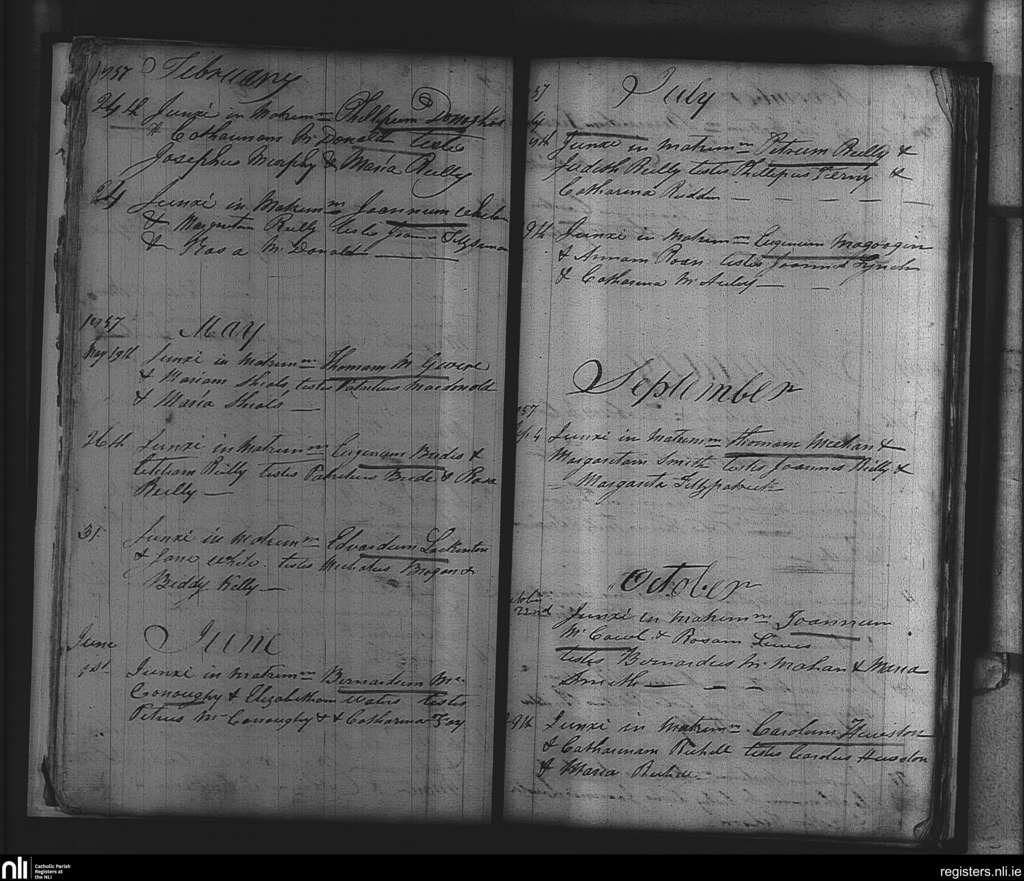 1757 February
24th Junxi in Matrimm Phillipum
& Catharinam McDonald testes
Josephus Murphy & Maria Reilly
24 Junxi in Matrimm Joannum
& Margaritam Reilly testes Joannes
& Rosa McDonald
1757 May
May 19th Junxi in Matrimm Thomam
& Mariam Sheals, testes Patritius Macdonald
& Maria Sheals
26th Junxi in Matrimm Eugenium &
Reilly testes Patritius & Rosa
Reilly
31 Junxi in Matrimm Edvardum
& Jane White testes Brogan &
Biddy Kelly
June June
1st Junxi in Matrimm Bernardum Mc
Conoughy & Elizabetham Waters testes
Petrus McConoughy & Catharina Foy
57 July
4
Junxi in Matrimm Petrum Reilly &
Judith Reilly testes Phillipus &
Catharina
9th Junxi in Matrimm Eugenium
& Annam testes Joannes Lynch
& Catharina McAuley
September
57
4 Junxi in Matrimm Thomam Meehan &
Margaritam Smith testes Joannes Reilly &
Margarita Fitzpatrick
October
22nd Junxi in Matrimm Joannum
& Rosam
testes Bernardus McMahan & Maria
Smith
9th Junxi in Matrimm Carolum Hueston
& Catharinam testes Carolus Hueston
& Maria
nli
Catholic Parish
Registers at
the NLI
registers.nli.ie